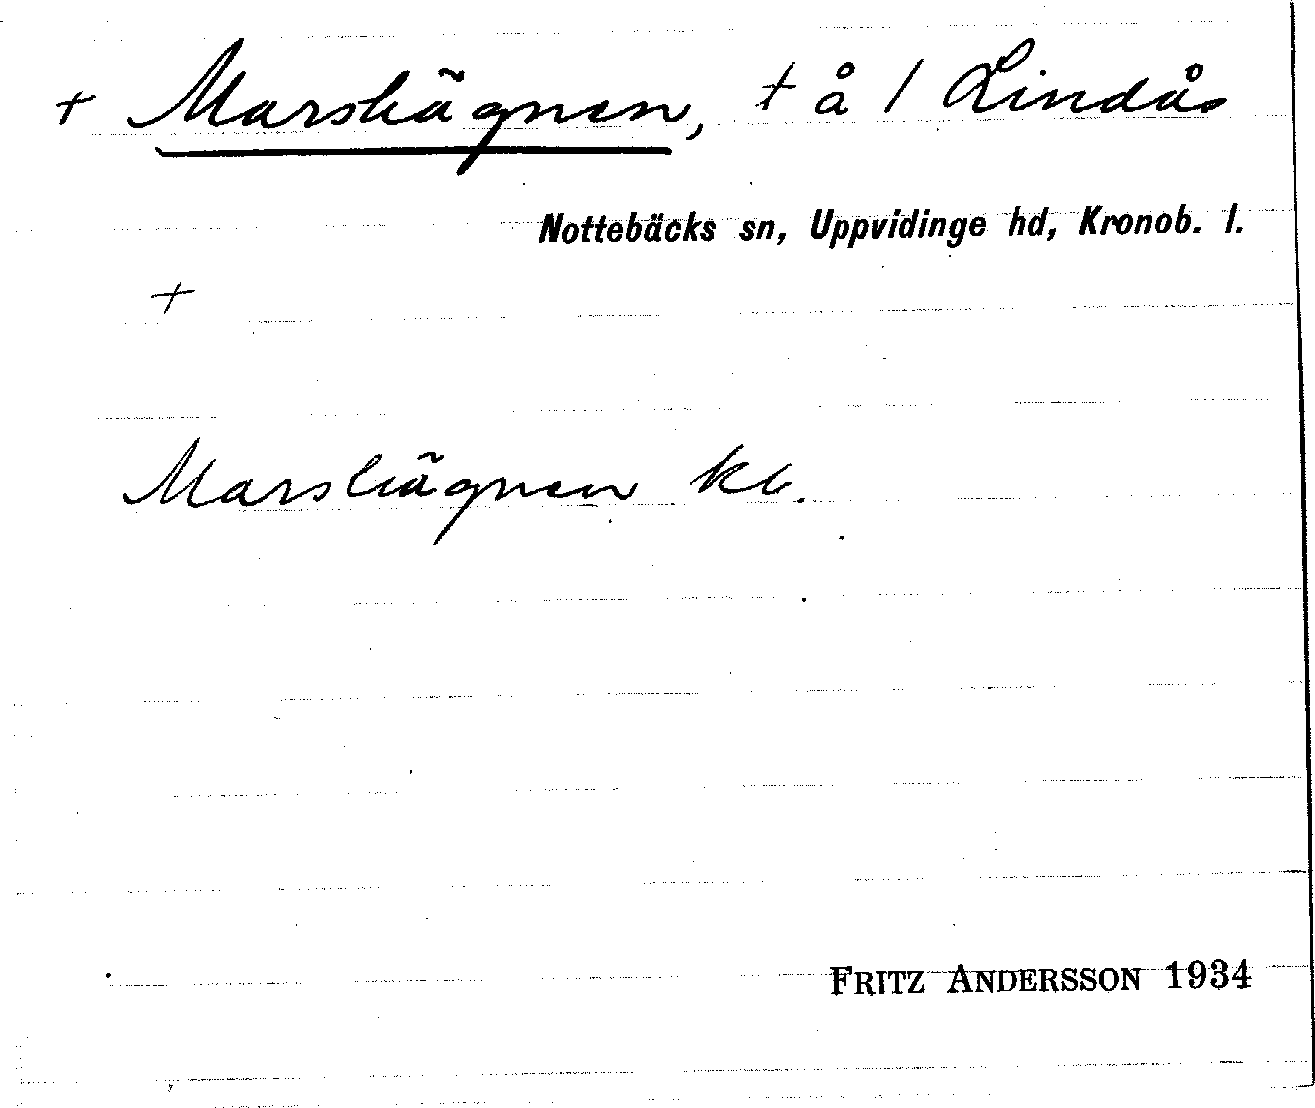 + Marshägnen, + å / Lindås
Nottebäcks sn, Uppvidinge hd, Kronob. l.
+
Marshägnen kb.
FRITZ ANDERSSON 1934